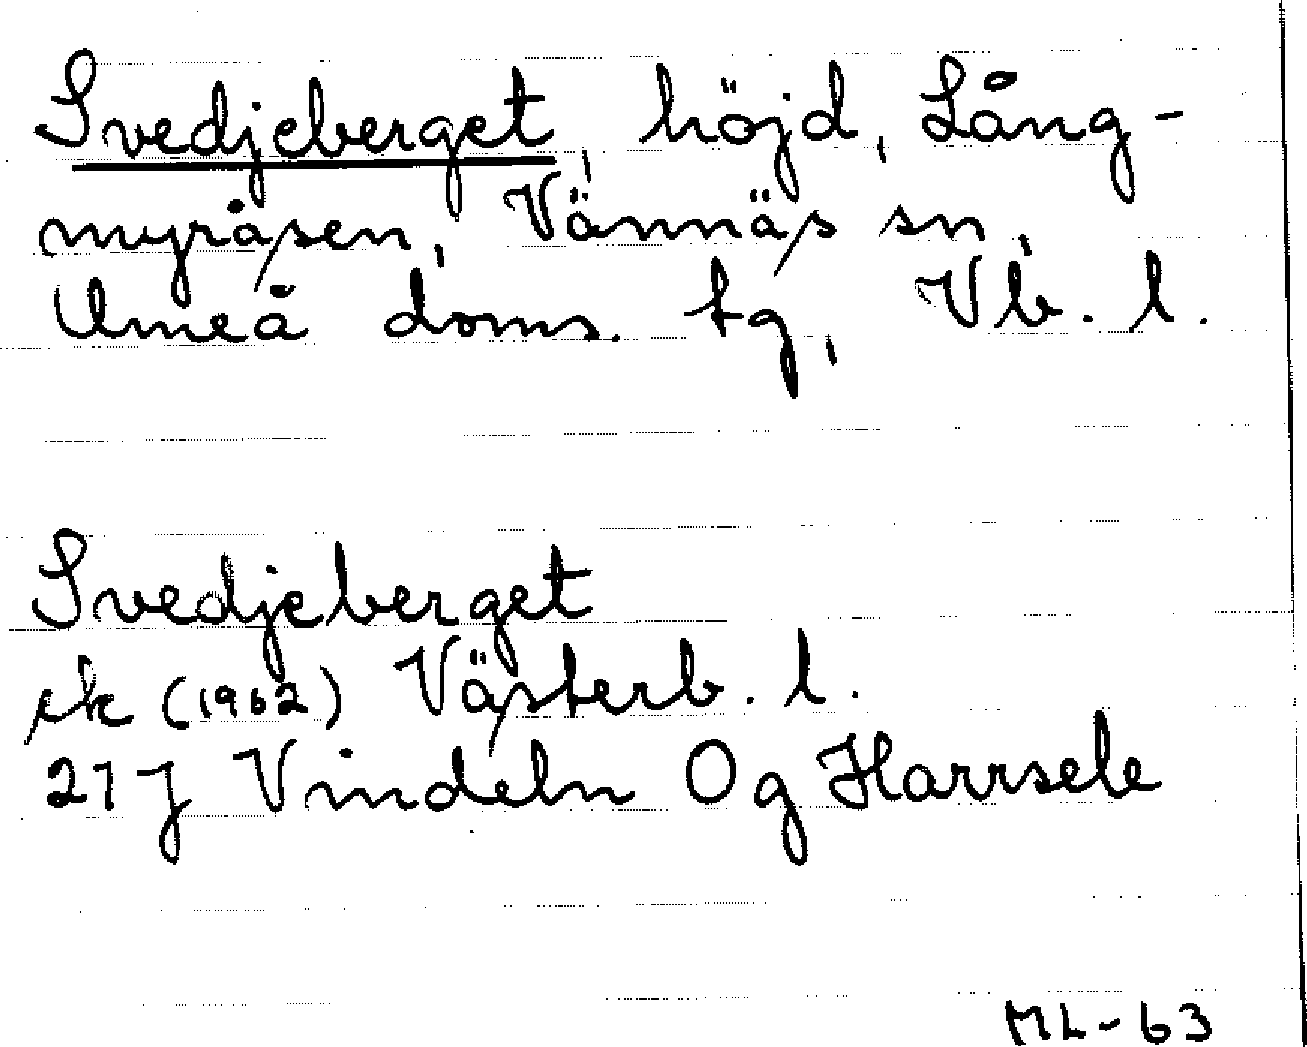 Svedjeberget, höjd, Lång-
myråsen, Vännäs sn,
Umeå doms. tg, Vb. l.
Svedjeberget
ek (1962) Västerb. l.
21J Vindeln Og Harrsele
ML-63